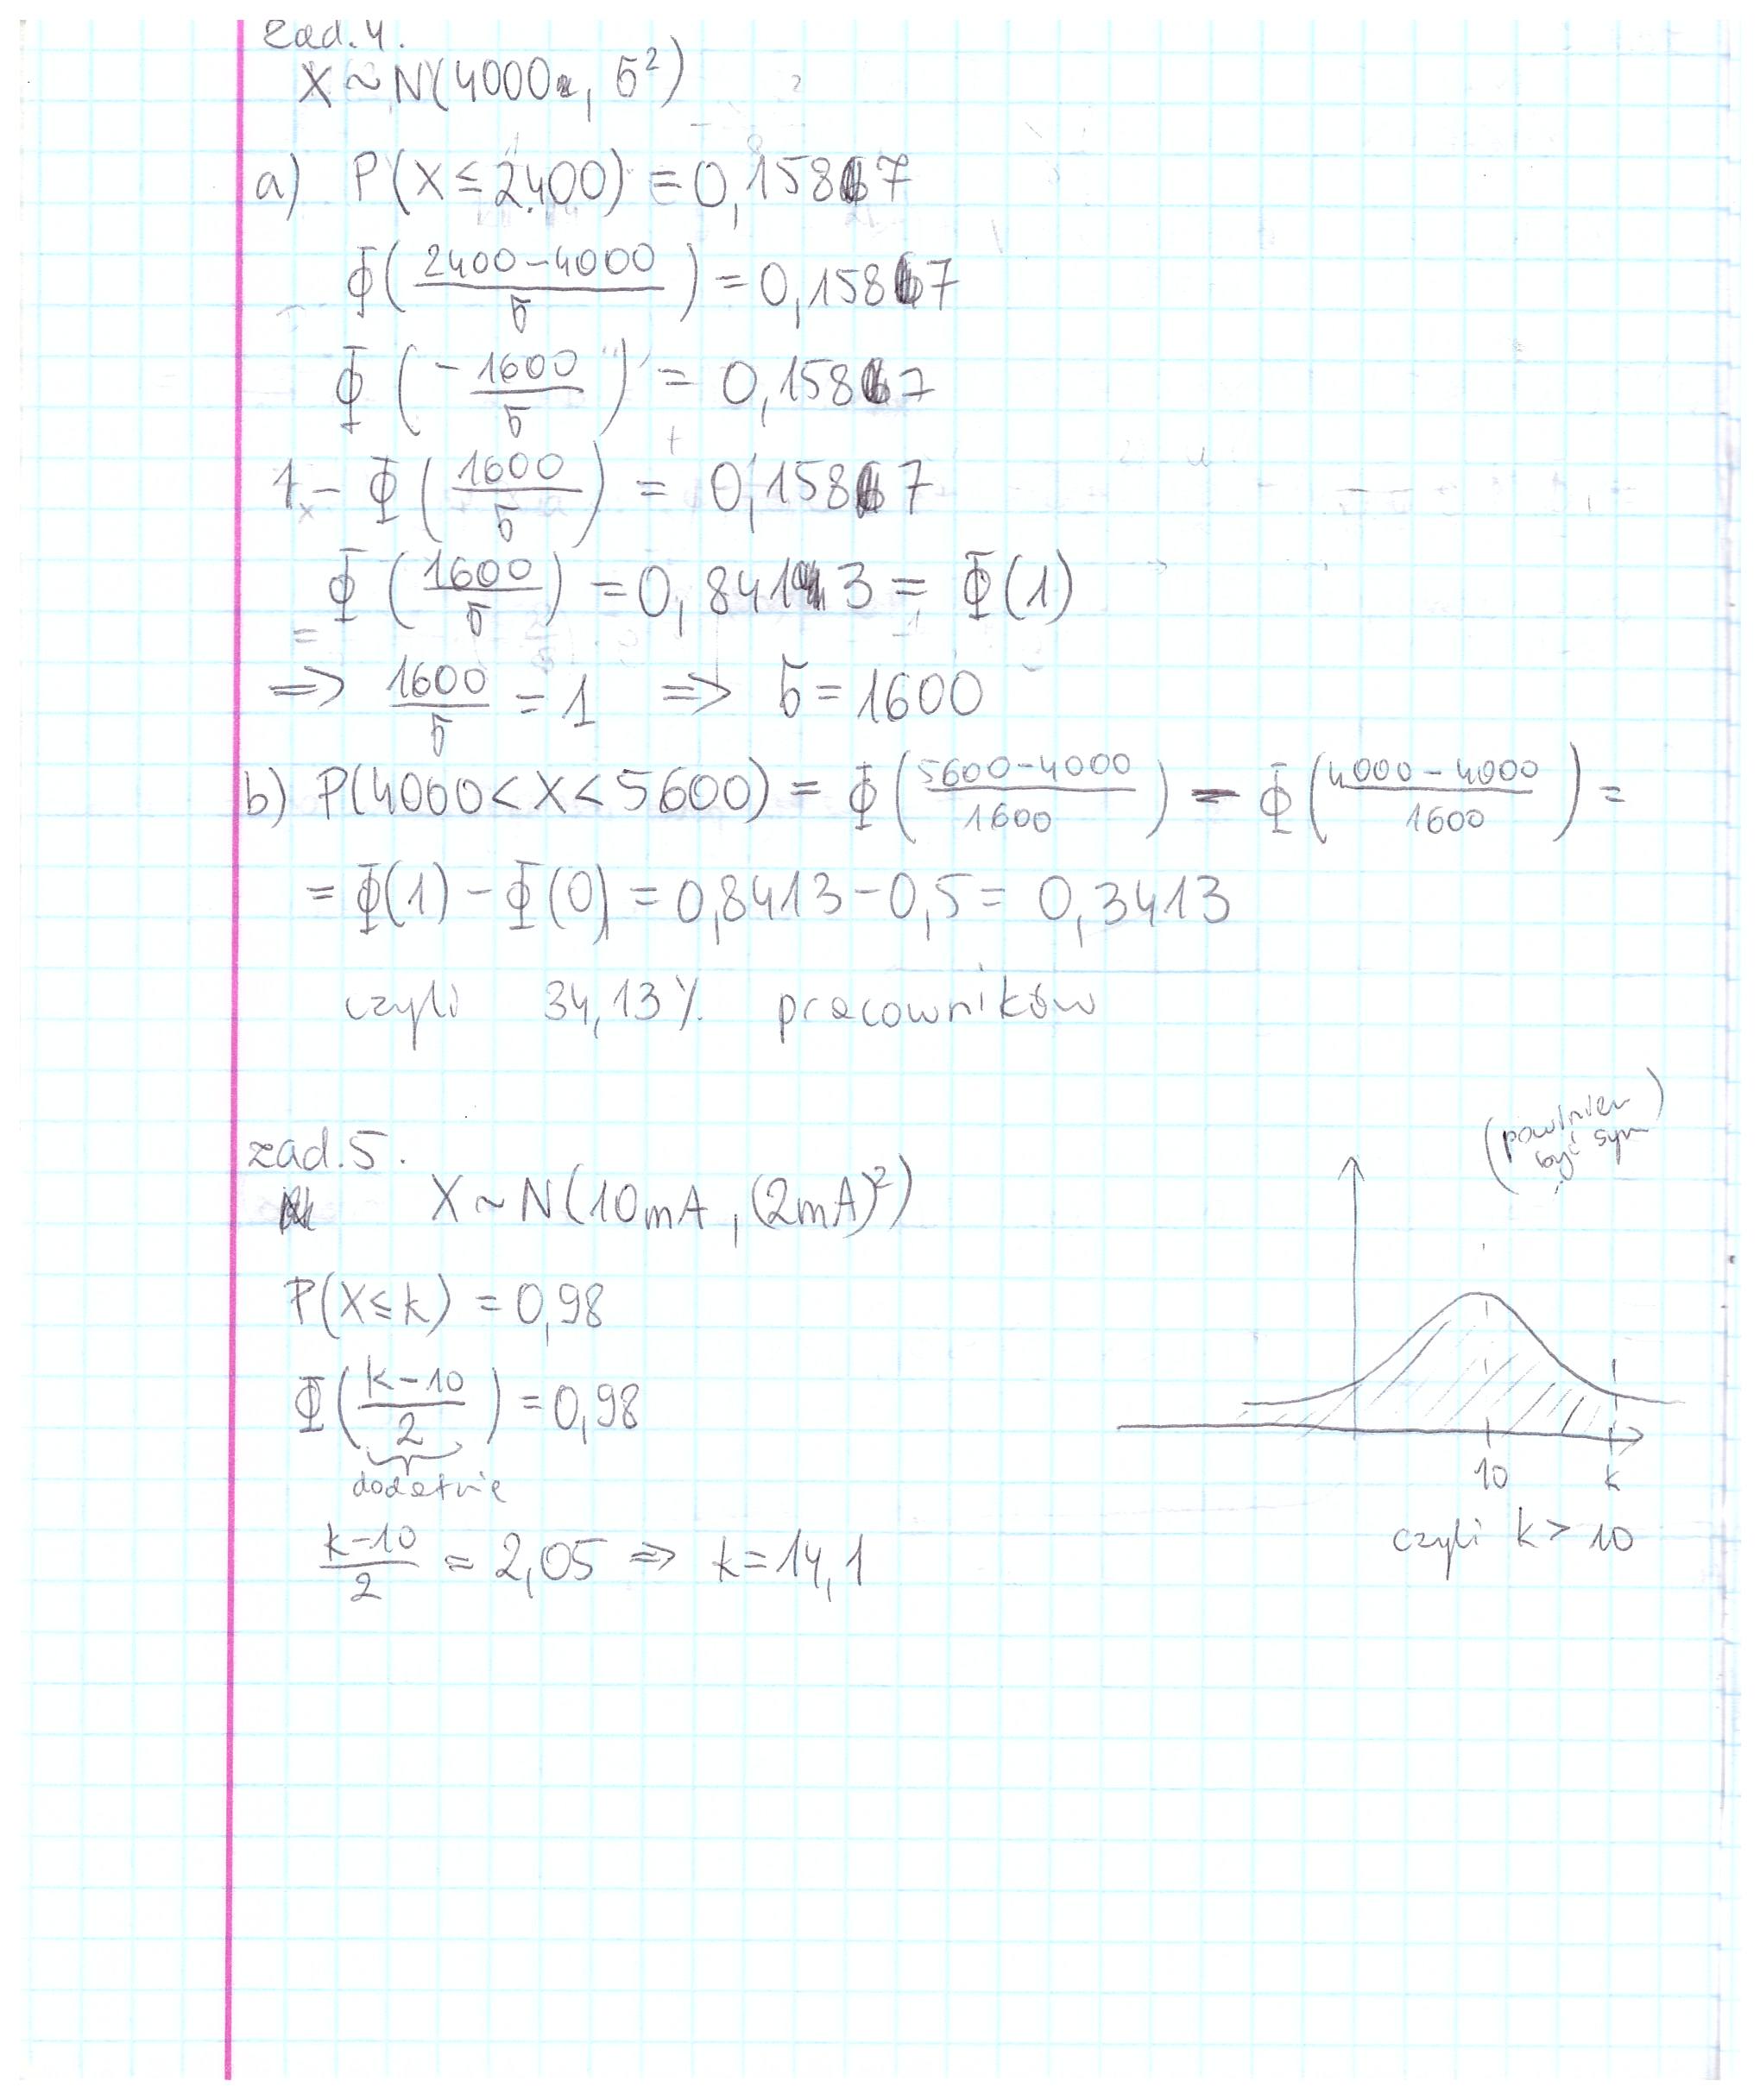 zad. 4.
X ~ N(4000, σ²)
a) P(X ≤ 2400) = 0,1587
Φ((2400 - 4000)/σ) = 0,1587
Φ(-1600/σ) = 0,1587
1 - Φ(1600/σ) = 0,1587
Φ(1600/σ) = 0,8413 = Φ(1)
⇒ 1600/σ = 1 ⇒ σ = 1600
b) P(4000 < X < 5600) = Φ((5600 - 4000)/1600) - Φ((4000 - 4000)/1600) =
= Φ(1) - Φ(0) = 0,8413 - 0,5 = 0,3413
czyli 34,13% pracowników
zad. 5.
X ~ N(10mA, (2mA)²)
P(X ≤ k) = 0,98
Φ((k - 10)/2) = 0,98
dodatnie
(k - 10)/2 = 2,05 ⇒ k = 14,1
(powinien
być sym)
10 k
czyli k > 10